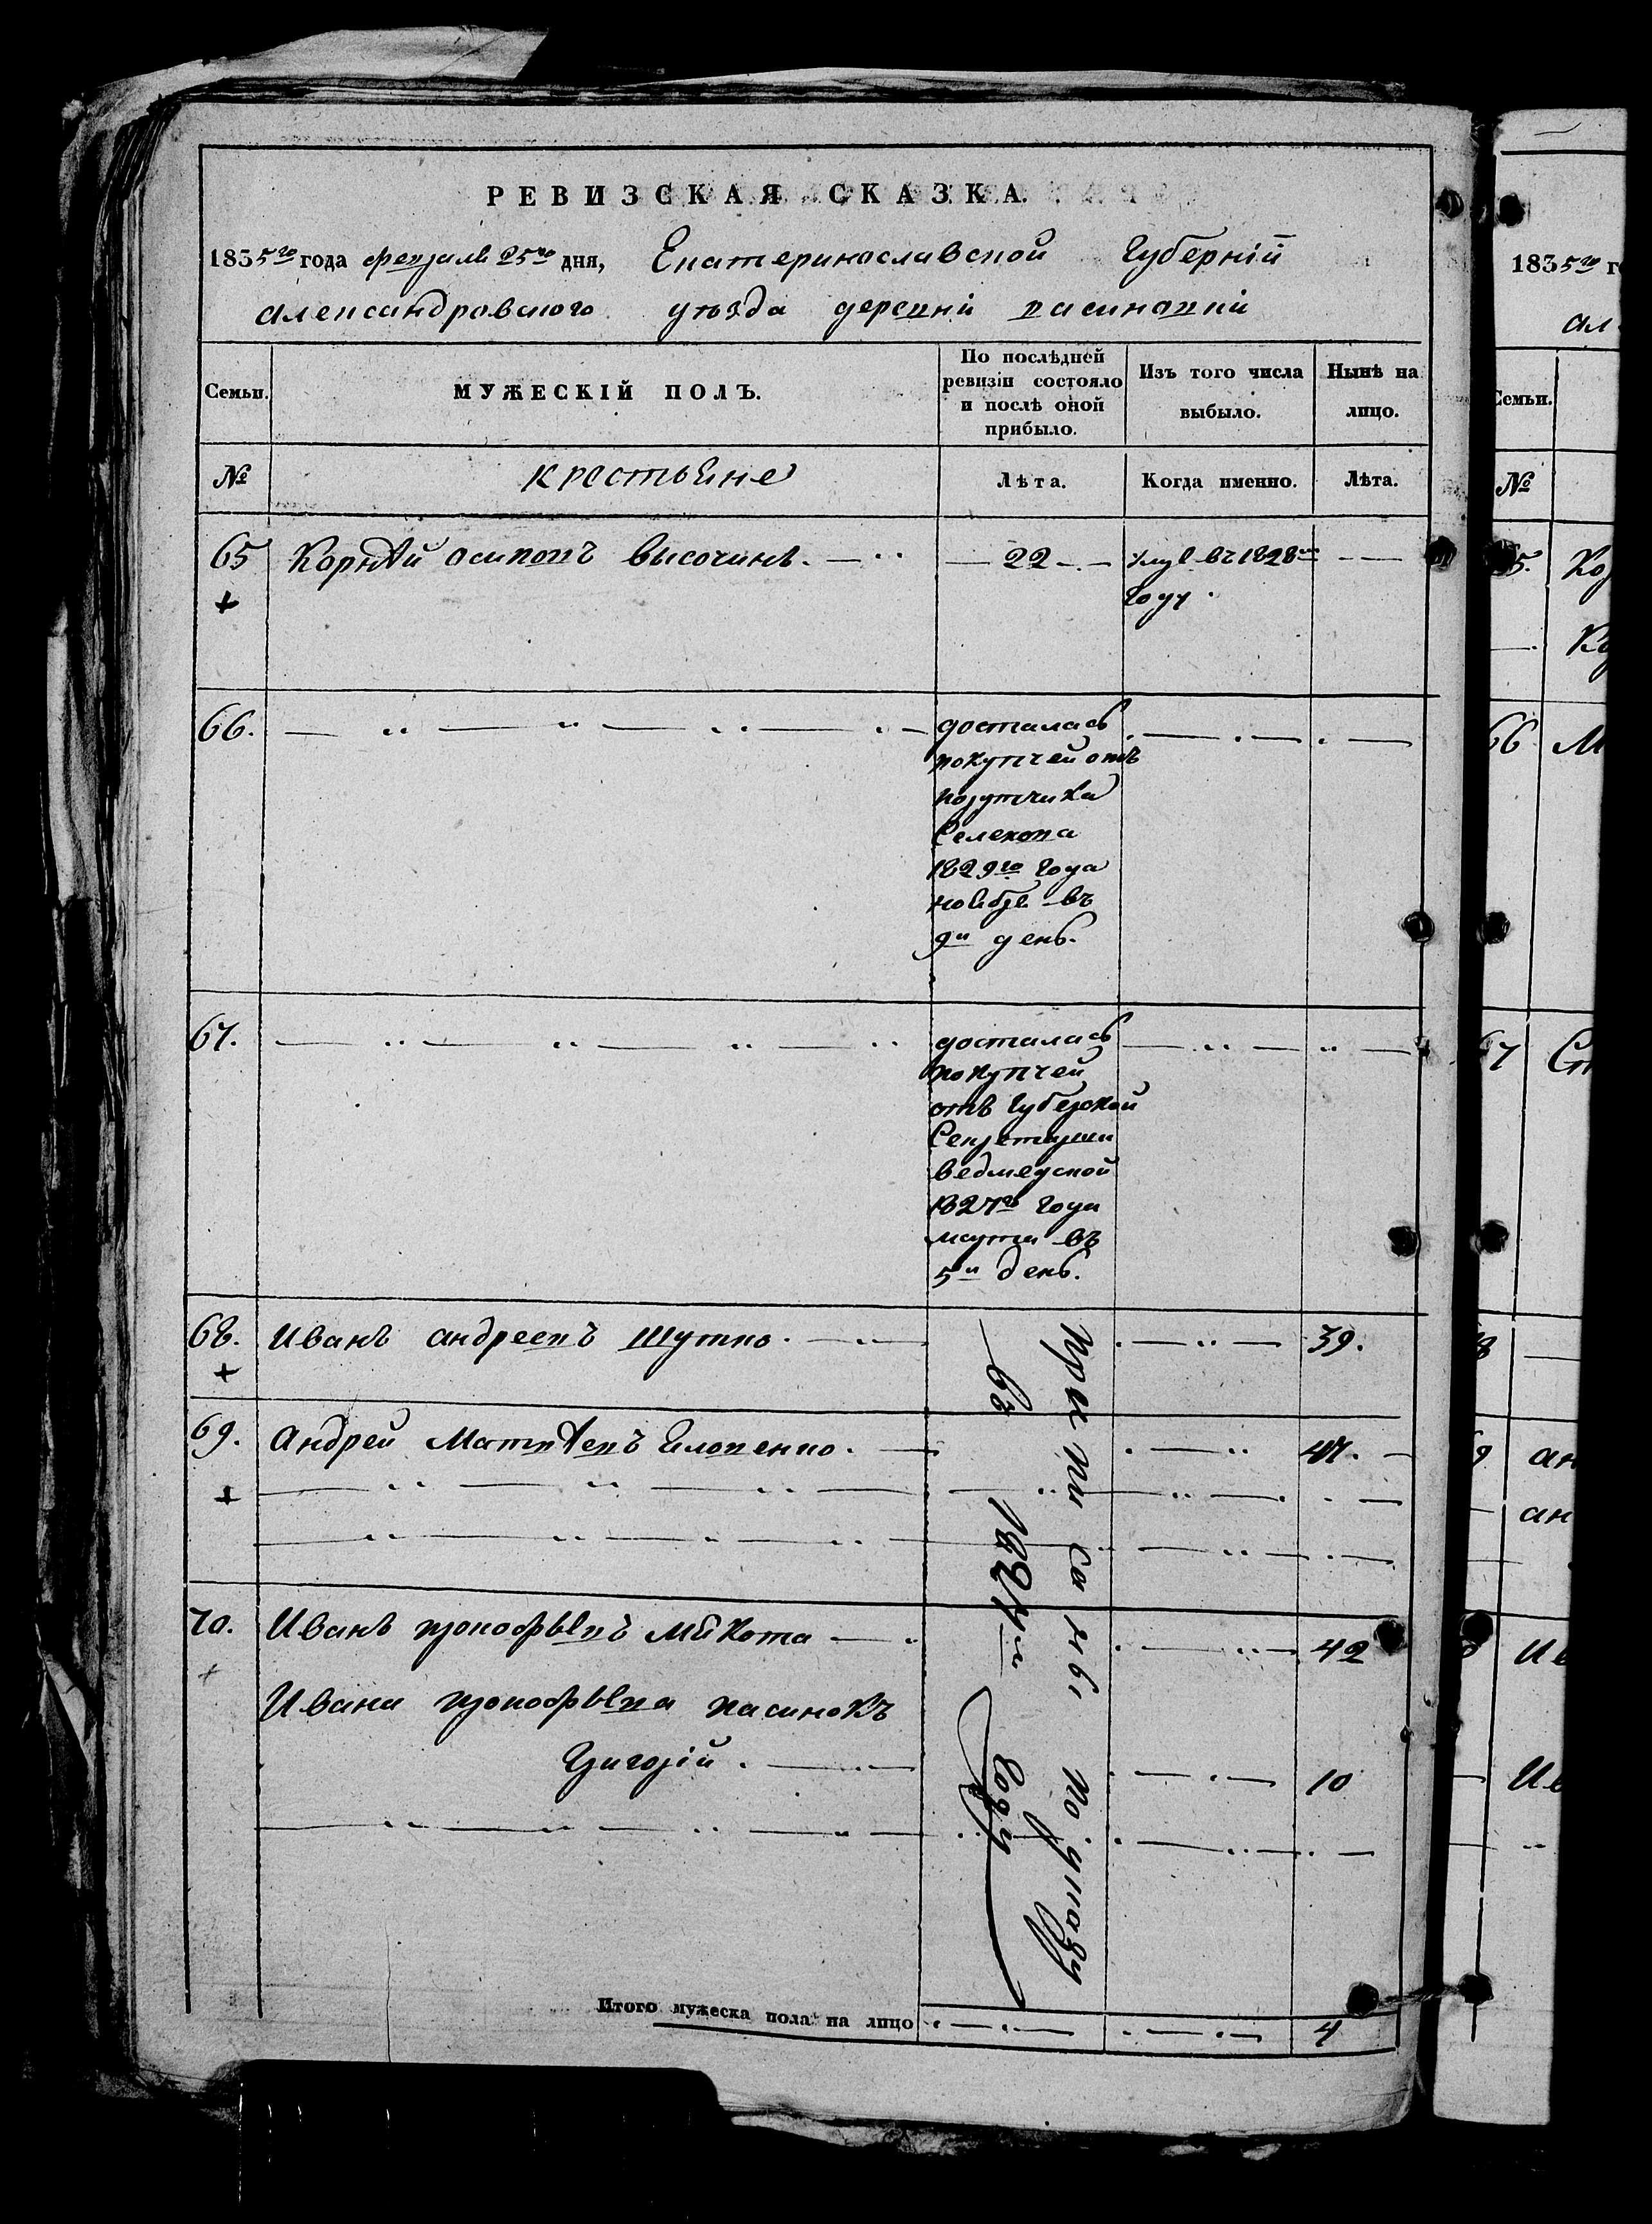 РЕВИЗСКАЯ СКАЗКА.
1835го года февраля 25го дня, Екатеринославской Губерніи
александровского уѣзда деревни
Семьи.
МУЖЕСКІЙ ПОЛЪ.
По послѣдней ревизіи состояло и послѣ оной прибыло.
Изъ того числа выбыло.
Нынѣ на лицо.
№
крестьяне
Лѣта.
Когда именно.
Лѣта.
65 Корнѣй осиповъ высочинъ. 22 умре въ 1828м
году.
66. досталась
покупчей отъ
порутчика
1829го года
ноября въ
9й день.
67. досталась
покупчей
отъ Губерской
Секретарши
ведмедской
1827го года
марта въ
5й день.
68. Иванъ андреевъ Шутко. 39.
69. Андрей Матвѣевъ 47.
70. Иванъ прокофьевъ Мякота 42
Ивана прокофьева пасинокъ
Григорій. 10
Приписаны по указу
въ 1827м году
Итого мужеска пола на лицо 4
1835го г
ал
Семьи.
№
65. Ко
66 М
67 Ст
ан
ан
Ив
Ив